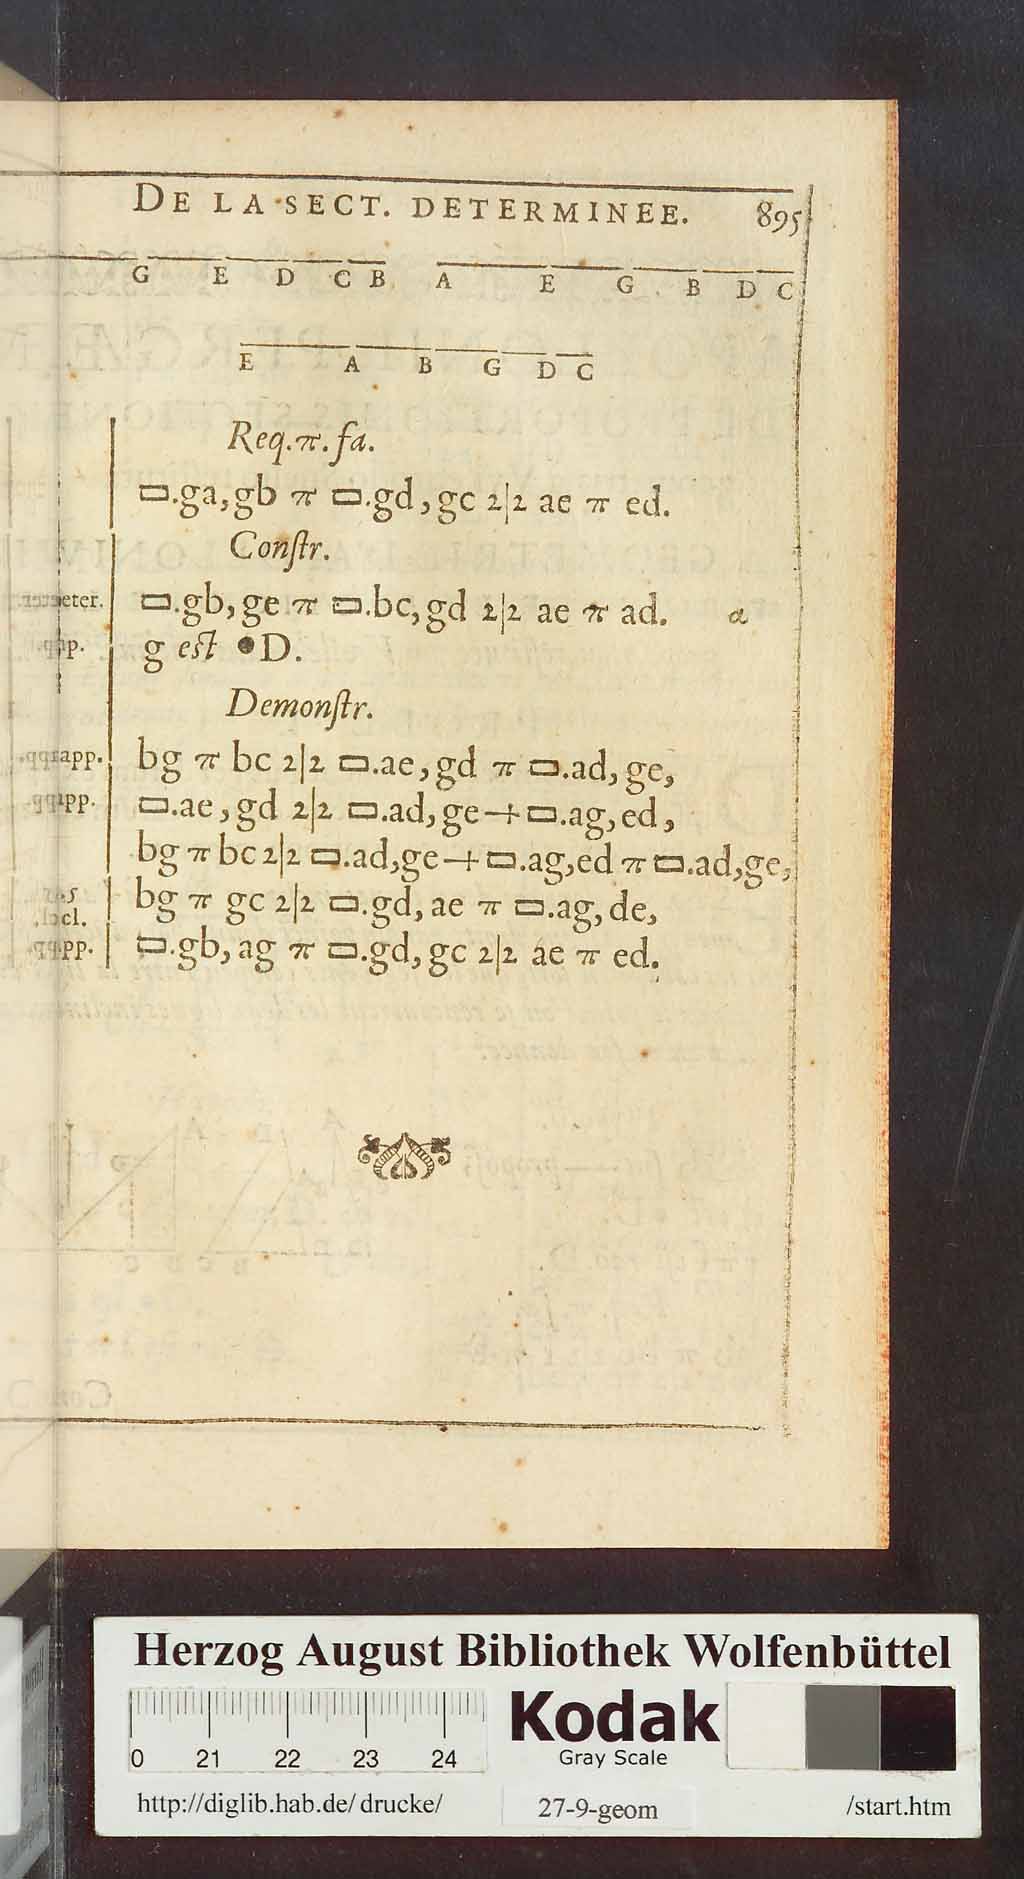 DE LA SECT. DETERMINEE. 895
G E D C B A E G B D C
E A B G D C
Req.π.fa.
▭.ga,gb π ▭.gd,gc 2|2 ae π ed.
Conſtr.
▭.gb,ge π ▭.bc,gd 2|2 ae π ad. α
g eſt •D.
Demonſtr.
app. bg π bc 2|2 ▭.ae,gd π ▭.ad,ge,
▭.ae,gd 2|2 ▭.ad,ge+▭.ag,ed,
bg π bc 2|2 ▭.ad,ge+▭.ag,ed π ▭.ad,ge,
bg π gc 2|2 ▭.gd,ae π ▭.ag,de,
▭.gb,ag π ▭.gd,gc 2|2 ae π ed.
Herzog August Bibliothek Wolfenbüttel
0 21 22 23 24
Kodak
Gray Scale
http://diglib.hab.de/drucke/ 27-9-geom /start.htm